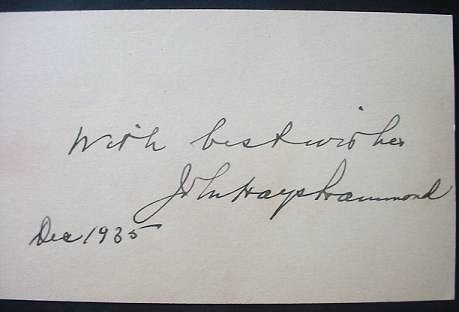 With best wishes
John Hays Hammond
Dec 1935